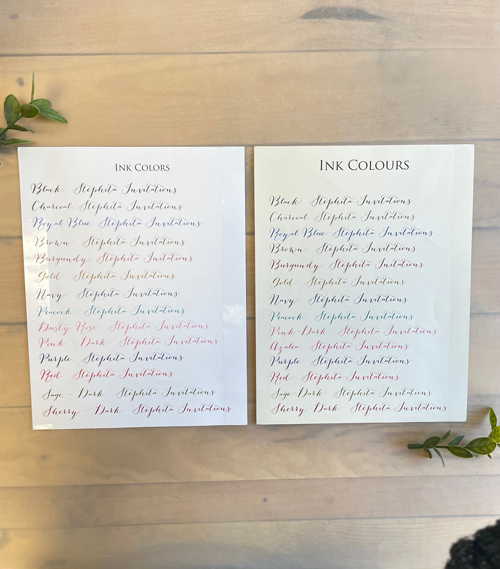 INK COLORS
Black Stephita Invitations
Charcoal Stephita Invitations
Royal Blue Stephita Invitations
Brown Stephita Invitations
Burgundy Stephita Invitations
Gold Stephita Invitations
Navy Stephita Invitations
Peacock Stephita Invitations
Dusty Rose Stephita Invitations
Pink - Dark Stephita Invitations
Purple Stephita Invitations
Red Stephita Invitations
Sage - Dark Stephita Invitations
Sherry - Dark Stephita Invitations
INK COLOURS
Black Stephita Invitations
Charcoal Stephita Invitations
Royal Blue Stephita Invitations
Brown Stephita Invitations
Burgundy Stephita Invitations
Gold Stephita Invitations
Navy Stephita Invitations
Peacock Stephita Invitations
Pink-Dark Stephita Invitations
Azalea Stephita Invitations
Purple Stephita Invitations
Red Stephita Invitations
Sage-Dark Stephita Invitations
Sherry-Dark Stephita Invitations